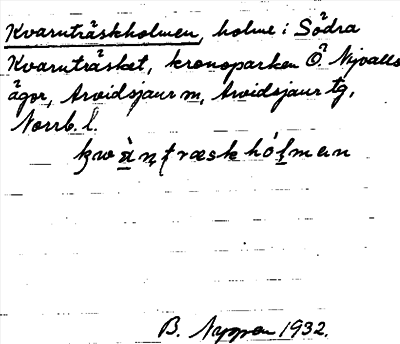 Kvarnträskholmen, holme i Södra
Kvarnträsket, kronoparken Ö. Nyvalls
ägor, Arvidsjaur m, Arvidsjaur tg,
Norrb. l.
kwàṇṭræskhólman
B. 1932.